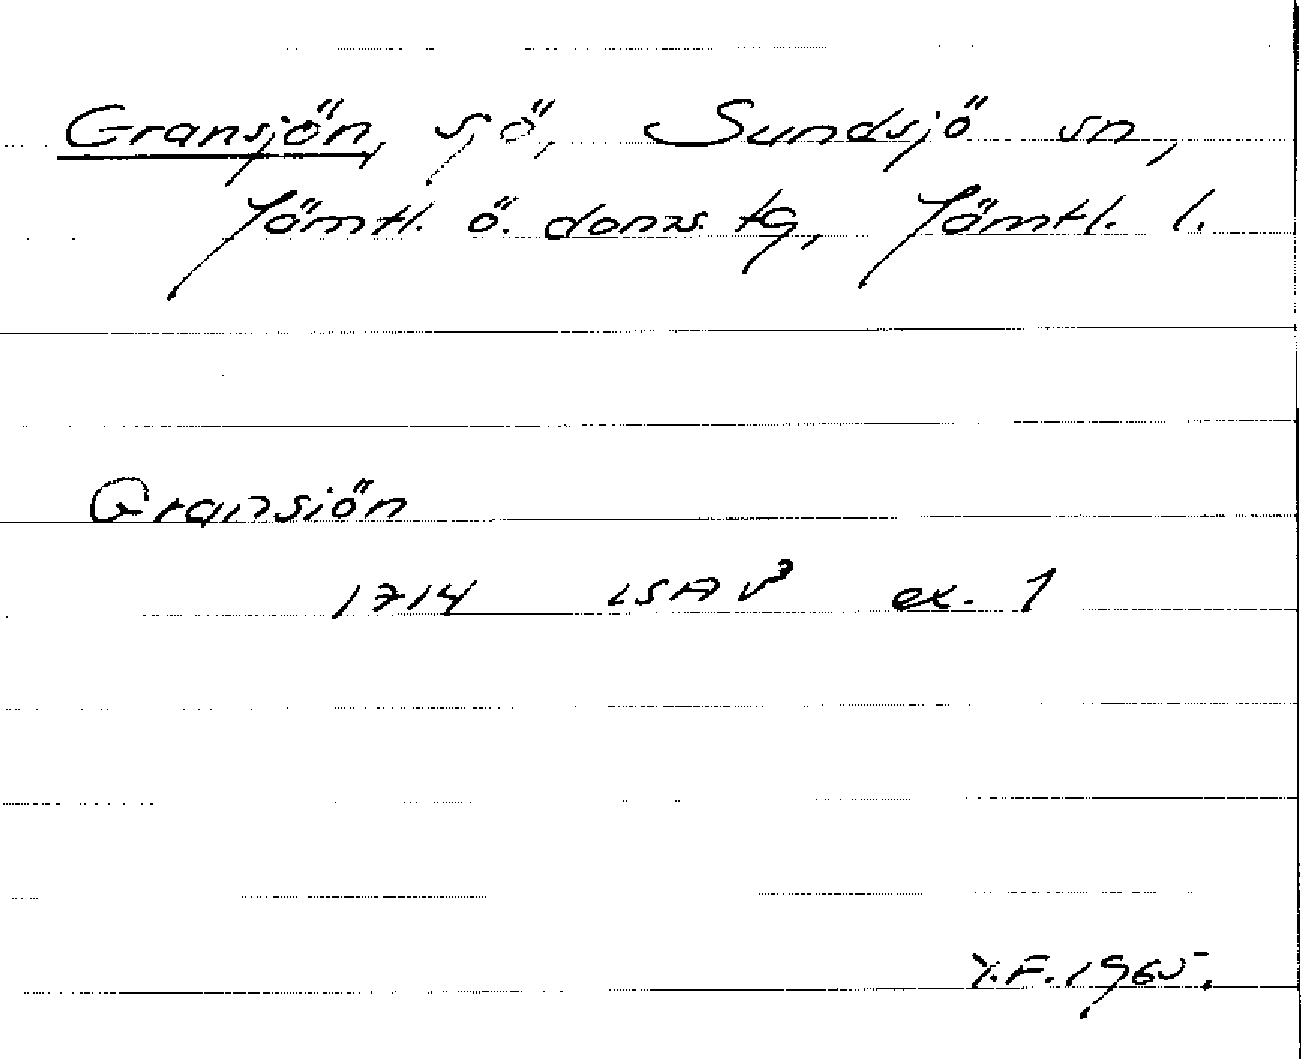 Gransjön, sjö, Sundsjö sn,
Jämtl. ö. doms. tg, Jämtl. l.
Gransiön
1714 LSA V³ ex. 1
Y.F. 1965.